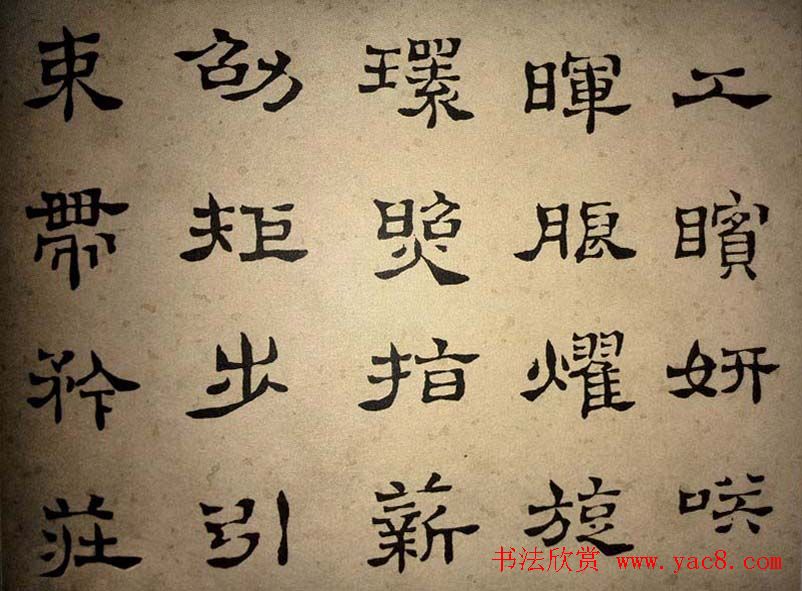 工矉妍咲
暉朖燿旋
環照指薪
劭矩步引
束帶矜莊
书法欣赏 www.yac8.com